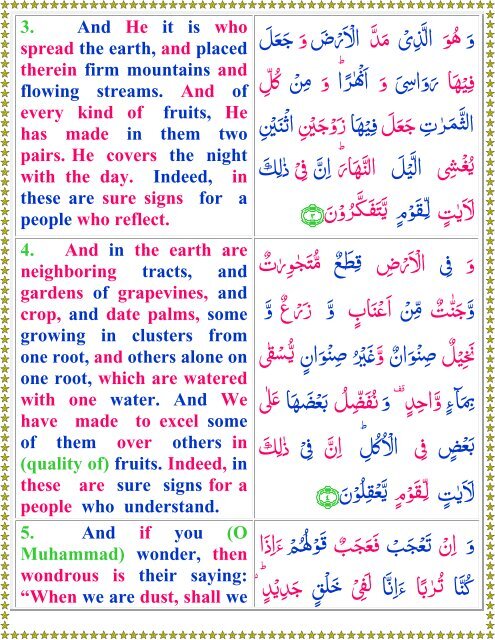 3. And He it is who
spread the earth, and placed
therein firm mountains and
flowing streams. And of
every kind of fruits, He
has made in them two
pairs. He covers the night
with the day. Indeed, in
these are sure signs for a
people who reflect.
وَ هُوَ الَّذِىۡ مَدَّ الۡاَرۡضَ وَ جَعَلَ
فِيۡهَا رَوَاسِىَ وَ اَنۡهٰرًا‌ ؕ وَ مِنۡ كُلِّ
الثَّمَرٰتِ جَعَلَ فِيۡهَا زَوۡجَيۡنِ اثۡنَيۡنِ
يُغۡشِى الَّيۡلَ النَّهَارَ‌ ؕ اِنَّ فِىۡ ذٰلِكَ
لَاٰيٰتٍ لِّقَوۡمٍ يَّتَفَكَّرُوۡنَ ‏﴿۳﴾
4. And in the earth are
neighboring tracts, and
gardens of grapevines, and
crop, and date palms, some
growing in clusters from
one root, and others alone on
one root, which are watered
with one water. And We
have made to excel some
of them over others in
(quality of) fruits. Indeed, in
these are sure signs for a
people who understand.
وَ فِى الۡاَرۡضِ قِطَعٌ مُّتَجٰوِرٰتٌ
وَّجَنّٰتٌ مِّنۡ اَعۡنَابٍ وَّ زَرۡعٌ وَّ
نَخِيۡلٌ صِنۡوَانٌ وَّغَيۡرُ صِنۡوَانٍ يُّسۡقٰى
بِمَآءٍ وَّاحِدٍ وَ نُفَضِّلُ بَعۡضَهَا عَلٰى
بَعۡضٍ فِى الۡاُكُلِ‌ ؕ اِنَّ فِىۡ ذٰلِكَ
لَاٰيٰتٍ لِّقَوۡمٍ يَّعۡقِلُوۡنَ ‏﴿۴﴾
5. And if you (O
Muhammad) wonder, then
wondrous is their saying:
“When we are dust, shall we
وَ اِنۡ تَعۡجَبۡ فَعَجَبٌ قَوۡلُهُمۡ ءَاِذَا
كُنَّا تُرٰبًا ءَاِنَّا لَفِىۡ خَلۡقٍ جَدِيۡدٍ‌ ؕ